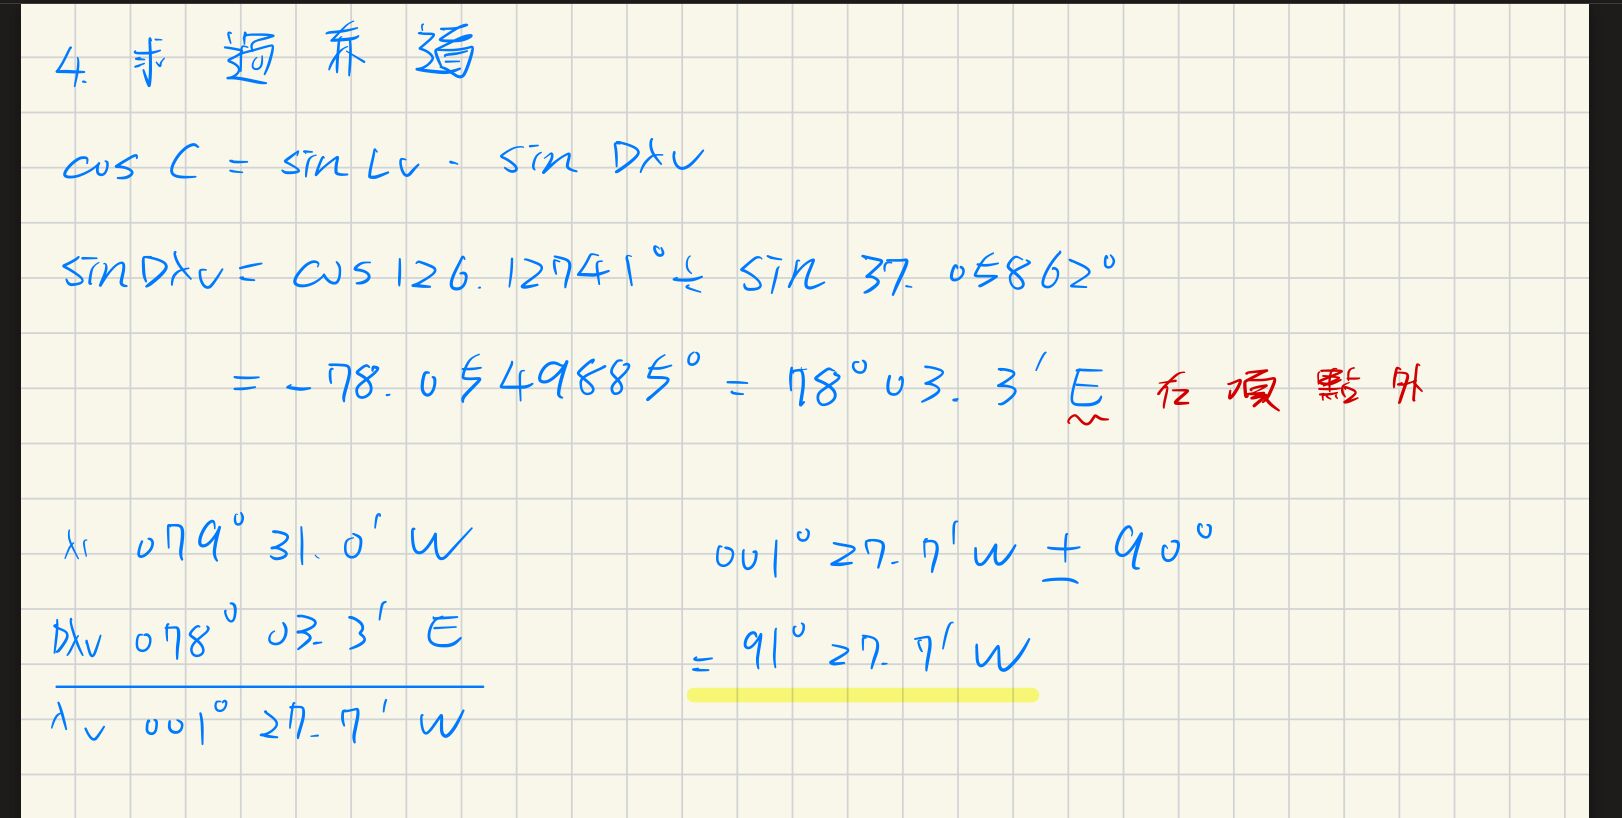 4. 求過赤道
cos C = sin Lv · sin Dλv
sin Dλv = cos 126.12741° ÷ sin 37.05862°
= -78.0549885° = 78° 03.3' E 在頂點外
λ1 079° 31.0' W
Dλv 078° 03.3' E
λv 001° 27.7' W
001° 27.7' W ± 90°
= 91° 27.7' W